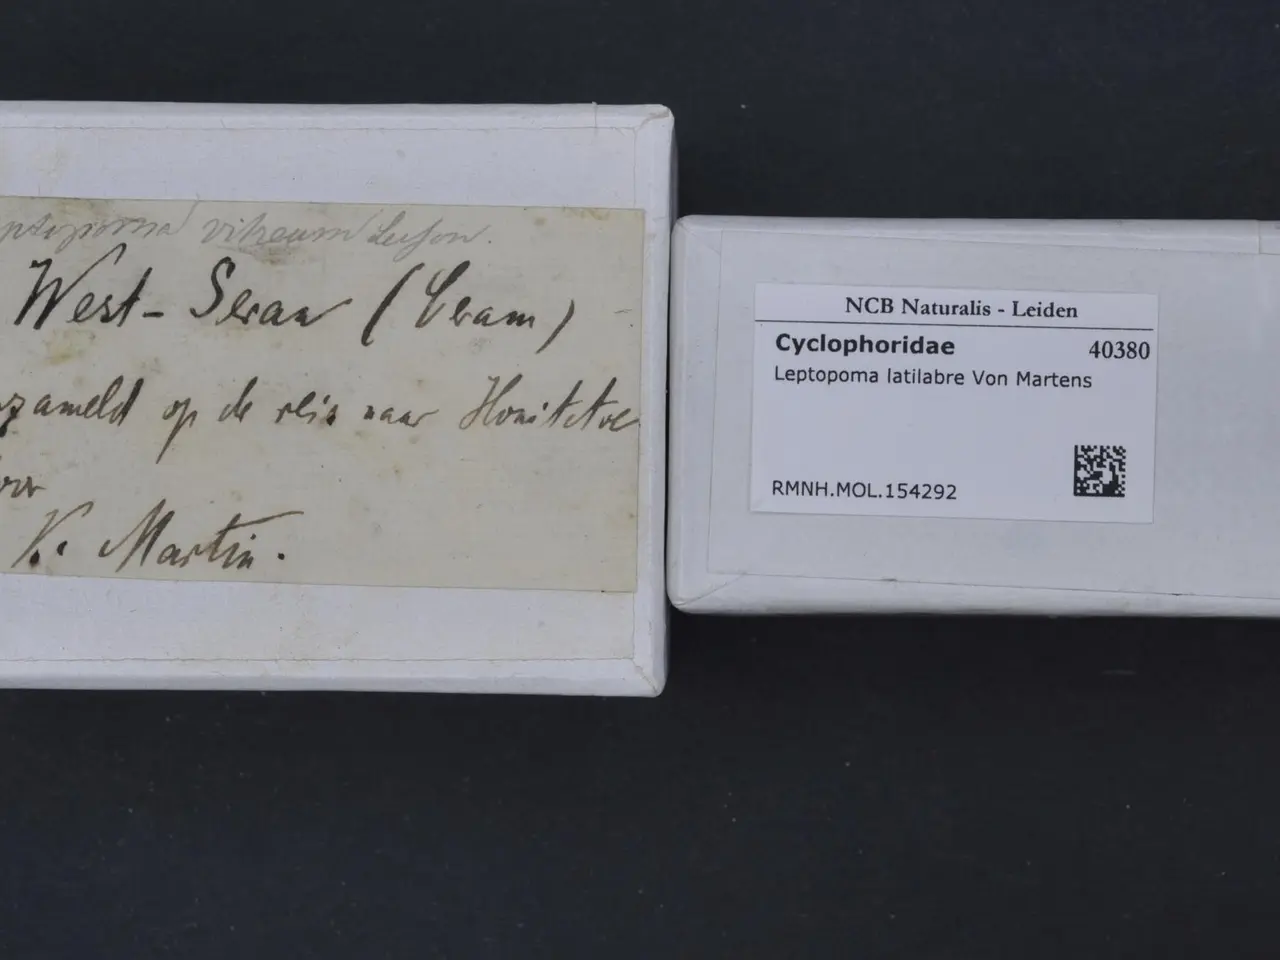 ptopoma vitreum Lesson.
West-Seran (Ceram)
zameld op de reis naar Honitetoe
K. Martin.
NCB Naturalis - Leiden
Cyclophoridae 40380
Leptopoma latilabre Von Martens
RMNH.MOL.154292